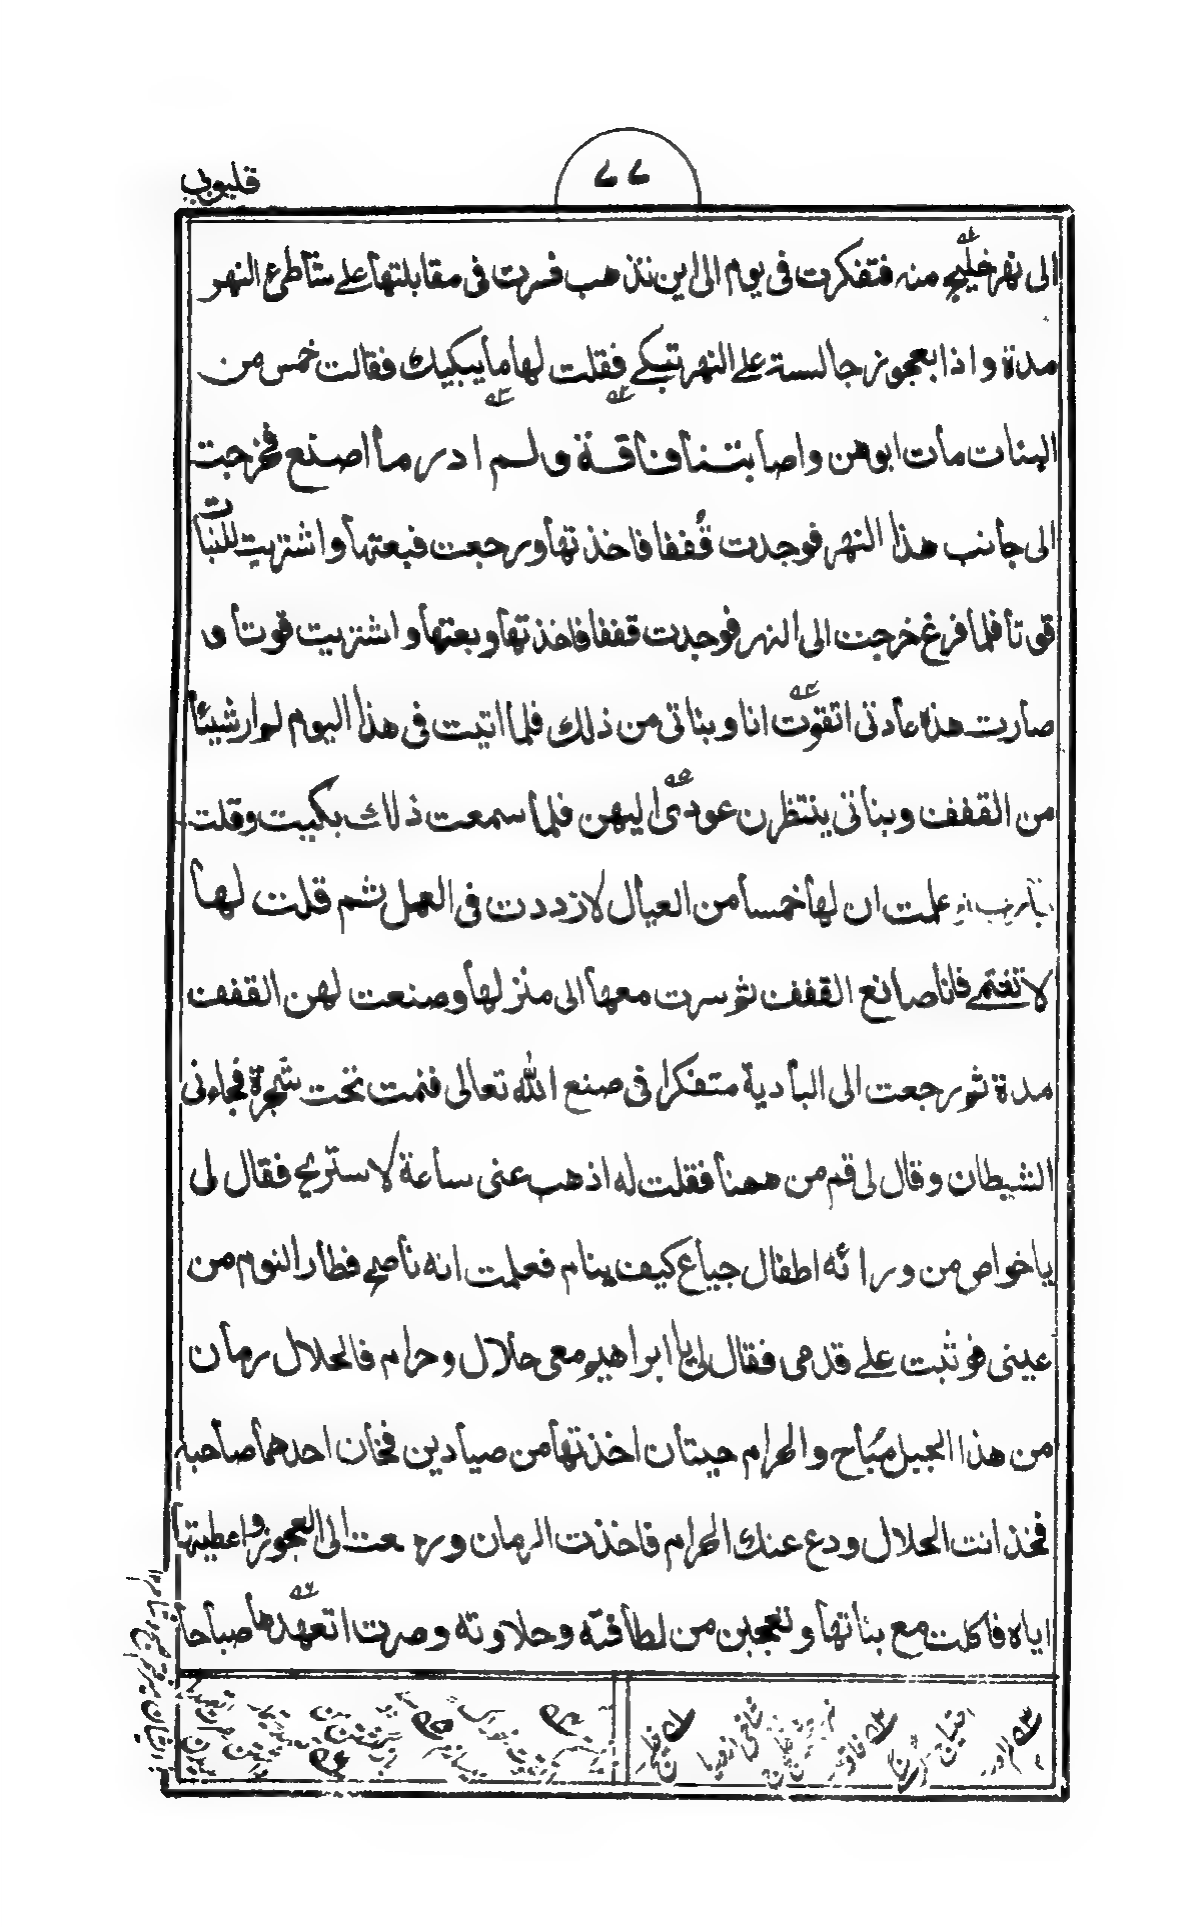 قليوبي
٤٤
الى نهر خليج منه فتفكرت فى يوم الى اين تذهب فسرت فى مقابلتها على شاطئ النهر
مدة واذا بعجوز جالسة على النهر تبكى فقلت لها ما يبكيك فقالت خمس من
البنات مات ابوهن واصابتنا فاقة ولم ادر ما اصنع فخرجت
الى جانب هذا النهر فوجدت قففا فاخذتها ورجعت فبعتها واشتريت للبنات
قوتا فلما فرغ خرجت الى النهر فوجدت قففا فاخذتها وبعتها واشتريت قوتا و
صارت هذه عادتى اتقوت انا وبناتى من ذلك فلما اتيت فى هذا اليوم لم ار شيئا
من القفف وبناتى ينتظرن عودى اليهن فلما سمعت ذلك بكيت وقلت
يارب لو علمت ان لها خمسا من العيال لازددت فى العمل ثم قلت لها
لا تغتمى فانا صانع القفف ثم سرت معها الى منزلها وصنعت لهن القفف
مدة ثم رجعت الى البادية متفكرا فى صنع الله تعالى فنمت تحت شجرة فجاءنى
الشيطان وقال لى قم من ههنا فقلت له اذهب عنى ساعة لاستريح فقال لى
يا خواص من ورائه اطفال جياع كيف ينام فعلمت انه ناصح فطار النوم من
عينى فوثبت على قدمى فقال لى يا ابراهيم معى حلال وحرام فالحلال رمان
من هذا الجبل مباح والحرام حيتان اخذتها من صيادين فخان احدهما صاحبه
فخذ انت الحلال ودع عنك الحرام فاخذت الرمان ورجعت الى العجوز واعطيتها
اياه فاكلت مع بناتها وتعجبن من لطافته وحلاوته وصرت اتعهدها صباحا